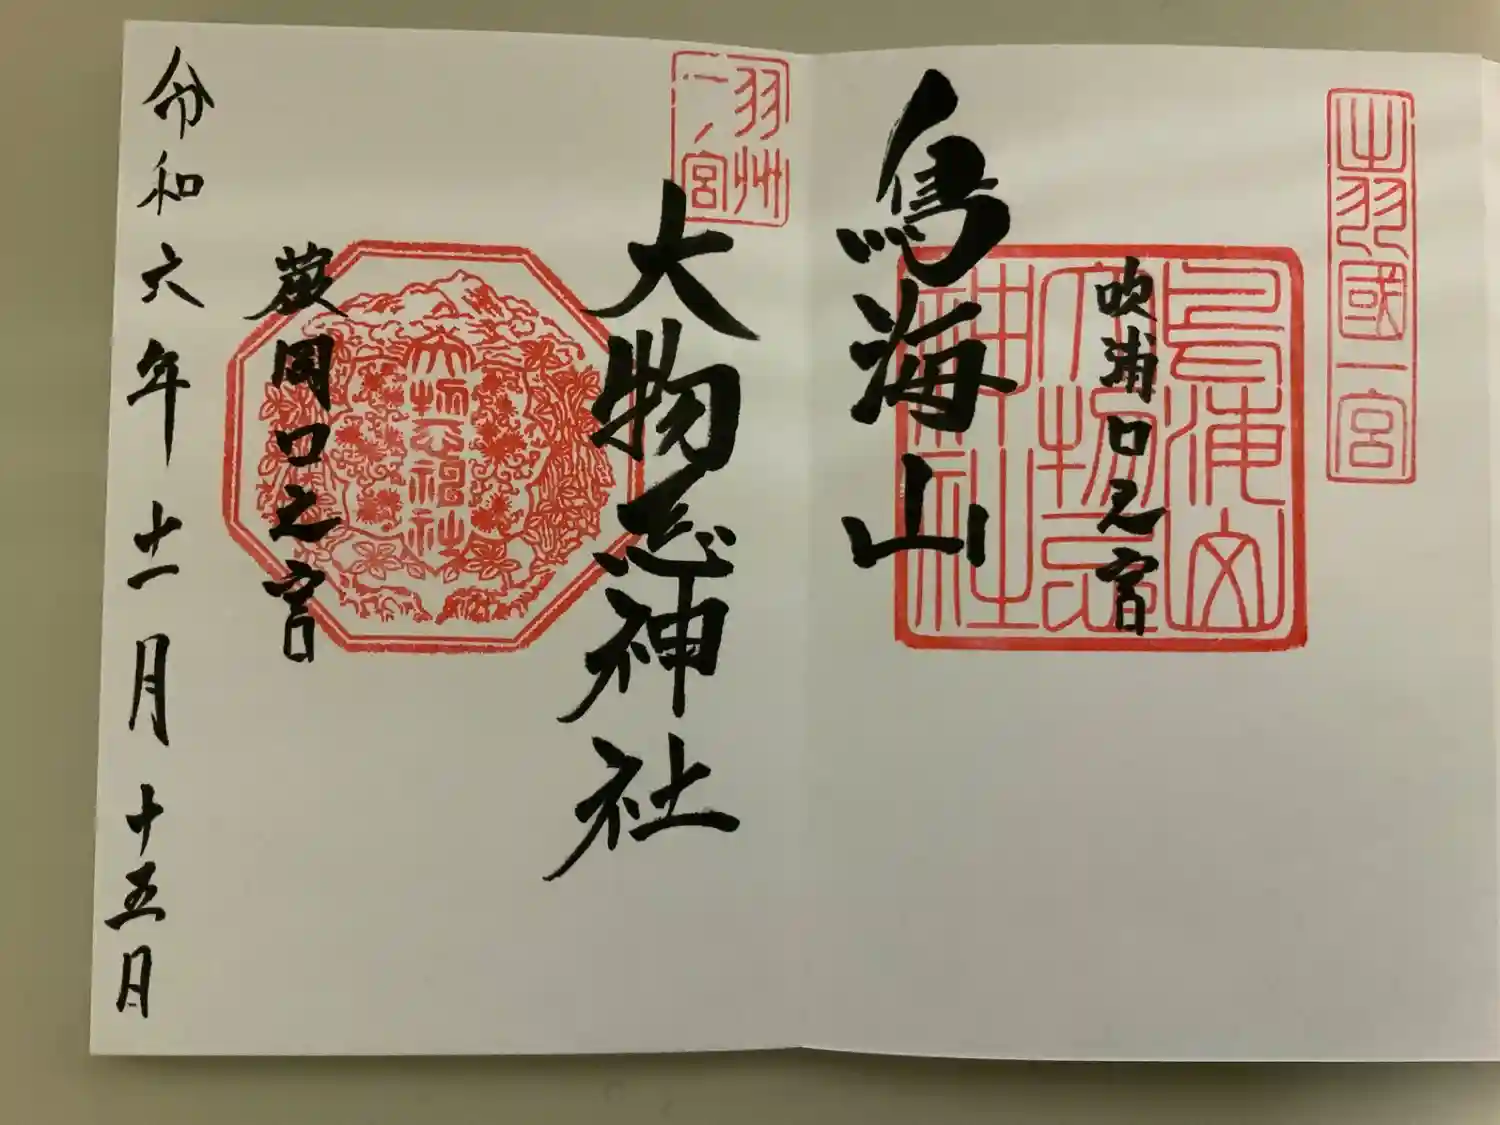 出羽國一宮
吹浦口之宮
鳥海山
鳥海山
大物忌
神社
羽州
一ノ宮
大物忌神社
大物忌神社
蕨岡口之宮
令和六年十一月十五日